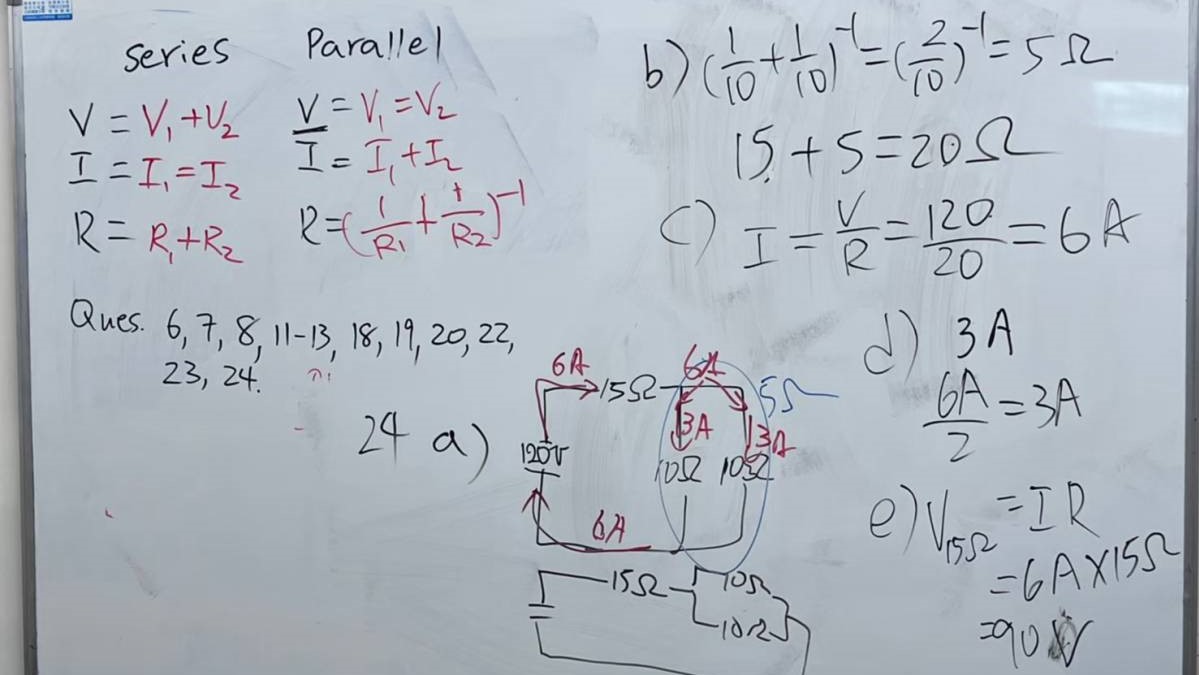 series Parallel
V = V₁+V₂
I = I₁ = I₂
R = R₁+R₂
V = V₁ = V₂
I = I₁ + I₂
R = (1/R₁ + 1/R₂)⁻¹
Ques. 6, 7, 8, 11-13, 18, 19, 20, 22,
23, 24.
24 a)
6A 15Ω 6A 5Ω
3A 3A
120V 10Ω 10Ω
6A
15Ω 10Ω
10Ω
b) (1/10 + 1/10)⁻¹ = (2/10)⁻¹ = 5Ω
15 + 5 = 20Ω
c) I = V/R = 120/20 = 6A
d) 3A
6A/2 = 3A
e) V₁₅Ω = IR
= 6A X 15Ω
= 90V